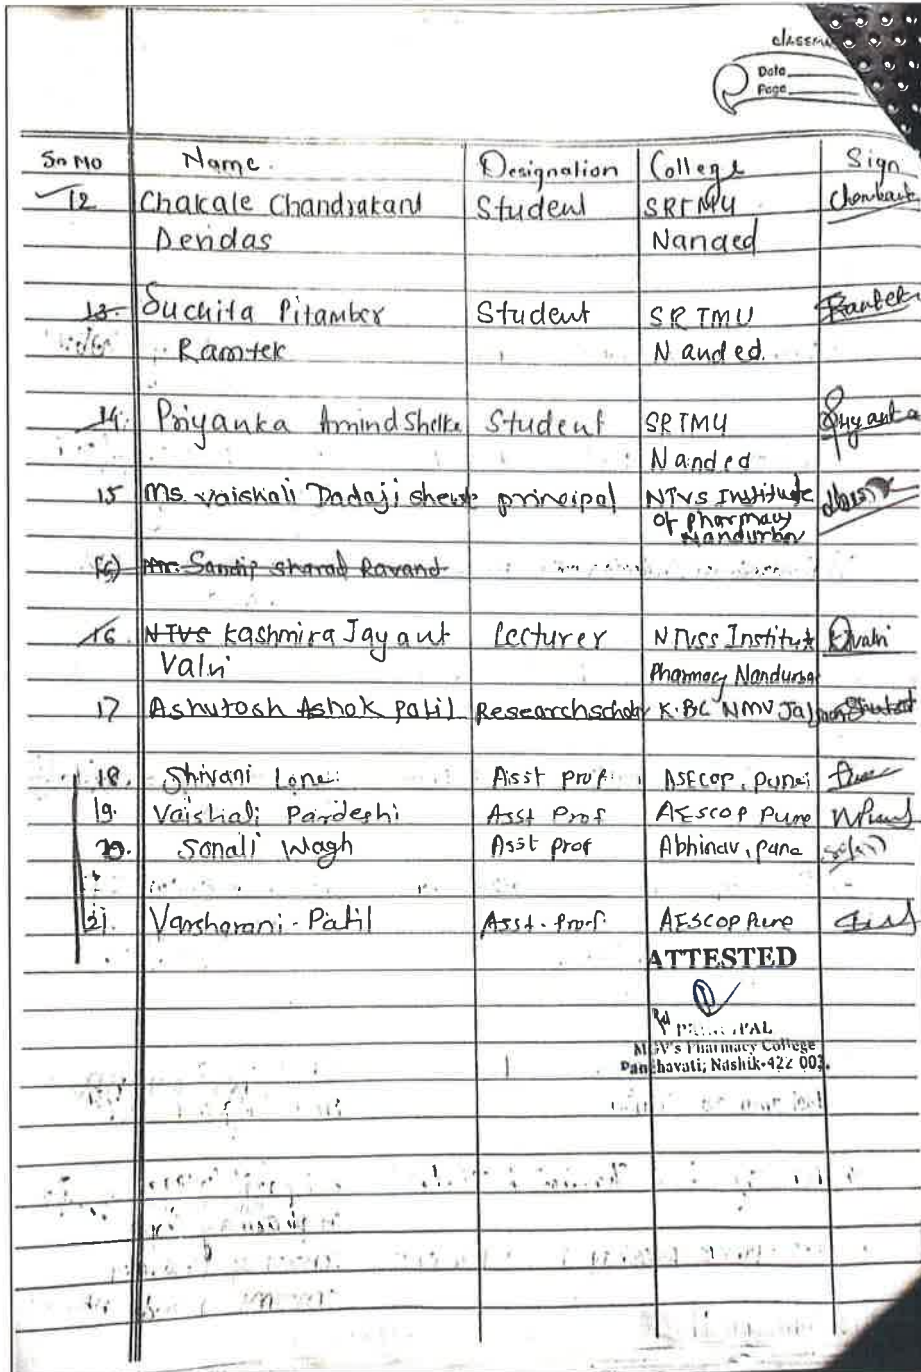 classm
Date
Page
Sn No Name. Designation College Sign
12 Chakale Chandrakant Student SRTMU
Devidas Nanded
13. Suchita Pitamber Student SRTMU Ramtek
Ramtek Nanded.
14. Priyanka Arvind Shelke Student SRTMU Priyanka
Nanded
15 Ms. Vaishali Dadaji principal NTVS Institute
of pharmacy
Nandurbar
16) Mr. Sandip sharad Ravand
16. NTVS Kashmira Jayant Lecturer NTVSS Institute
Pharmacy Nandurbar
17 Ashutosh Ashok patil Researchscholar K.BC NMV
18. Shivani Lone. Asst prof. ASECOP, Pune
19. Vaishali Pardeshi Asst Prof AESCOP Pune
20. Sonali Wagh Asst prof Abhinav, pune
21. Varsharani-Patil Asst. Prof. AESCOP Pune
ATTESTED
PRINCIPAL
MGV's Pharmacy College
Panchavati, Nashik-422 003.